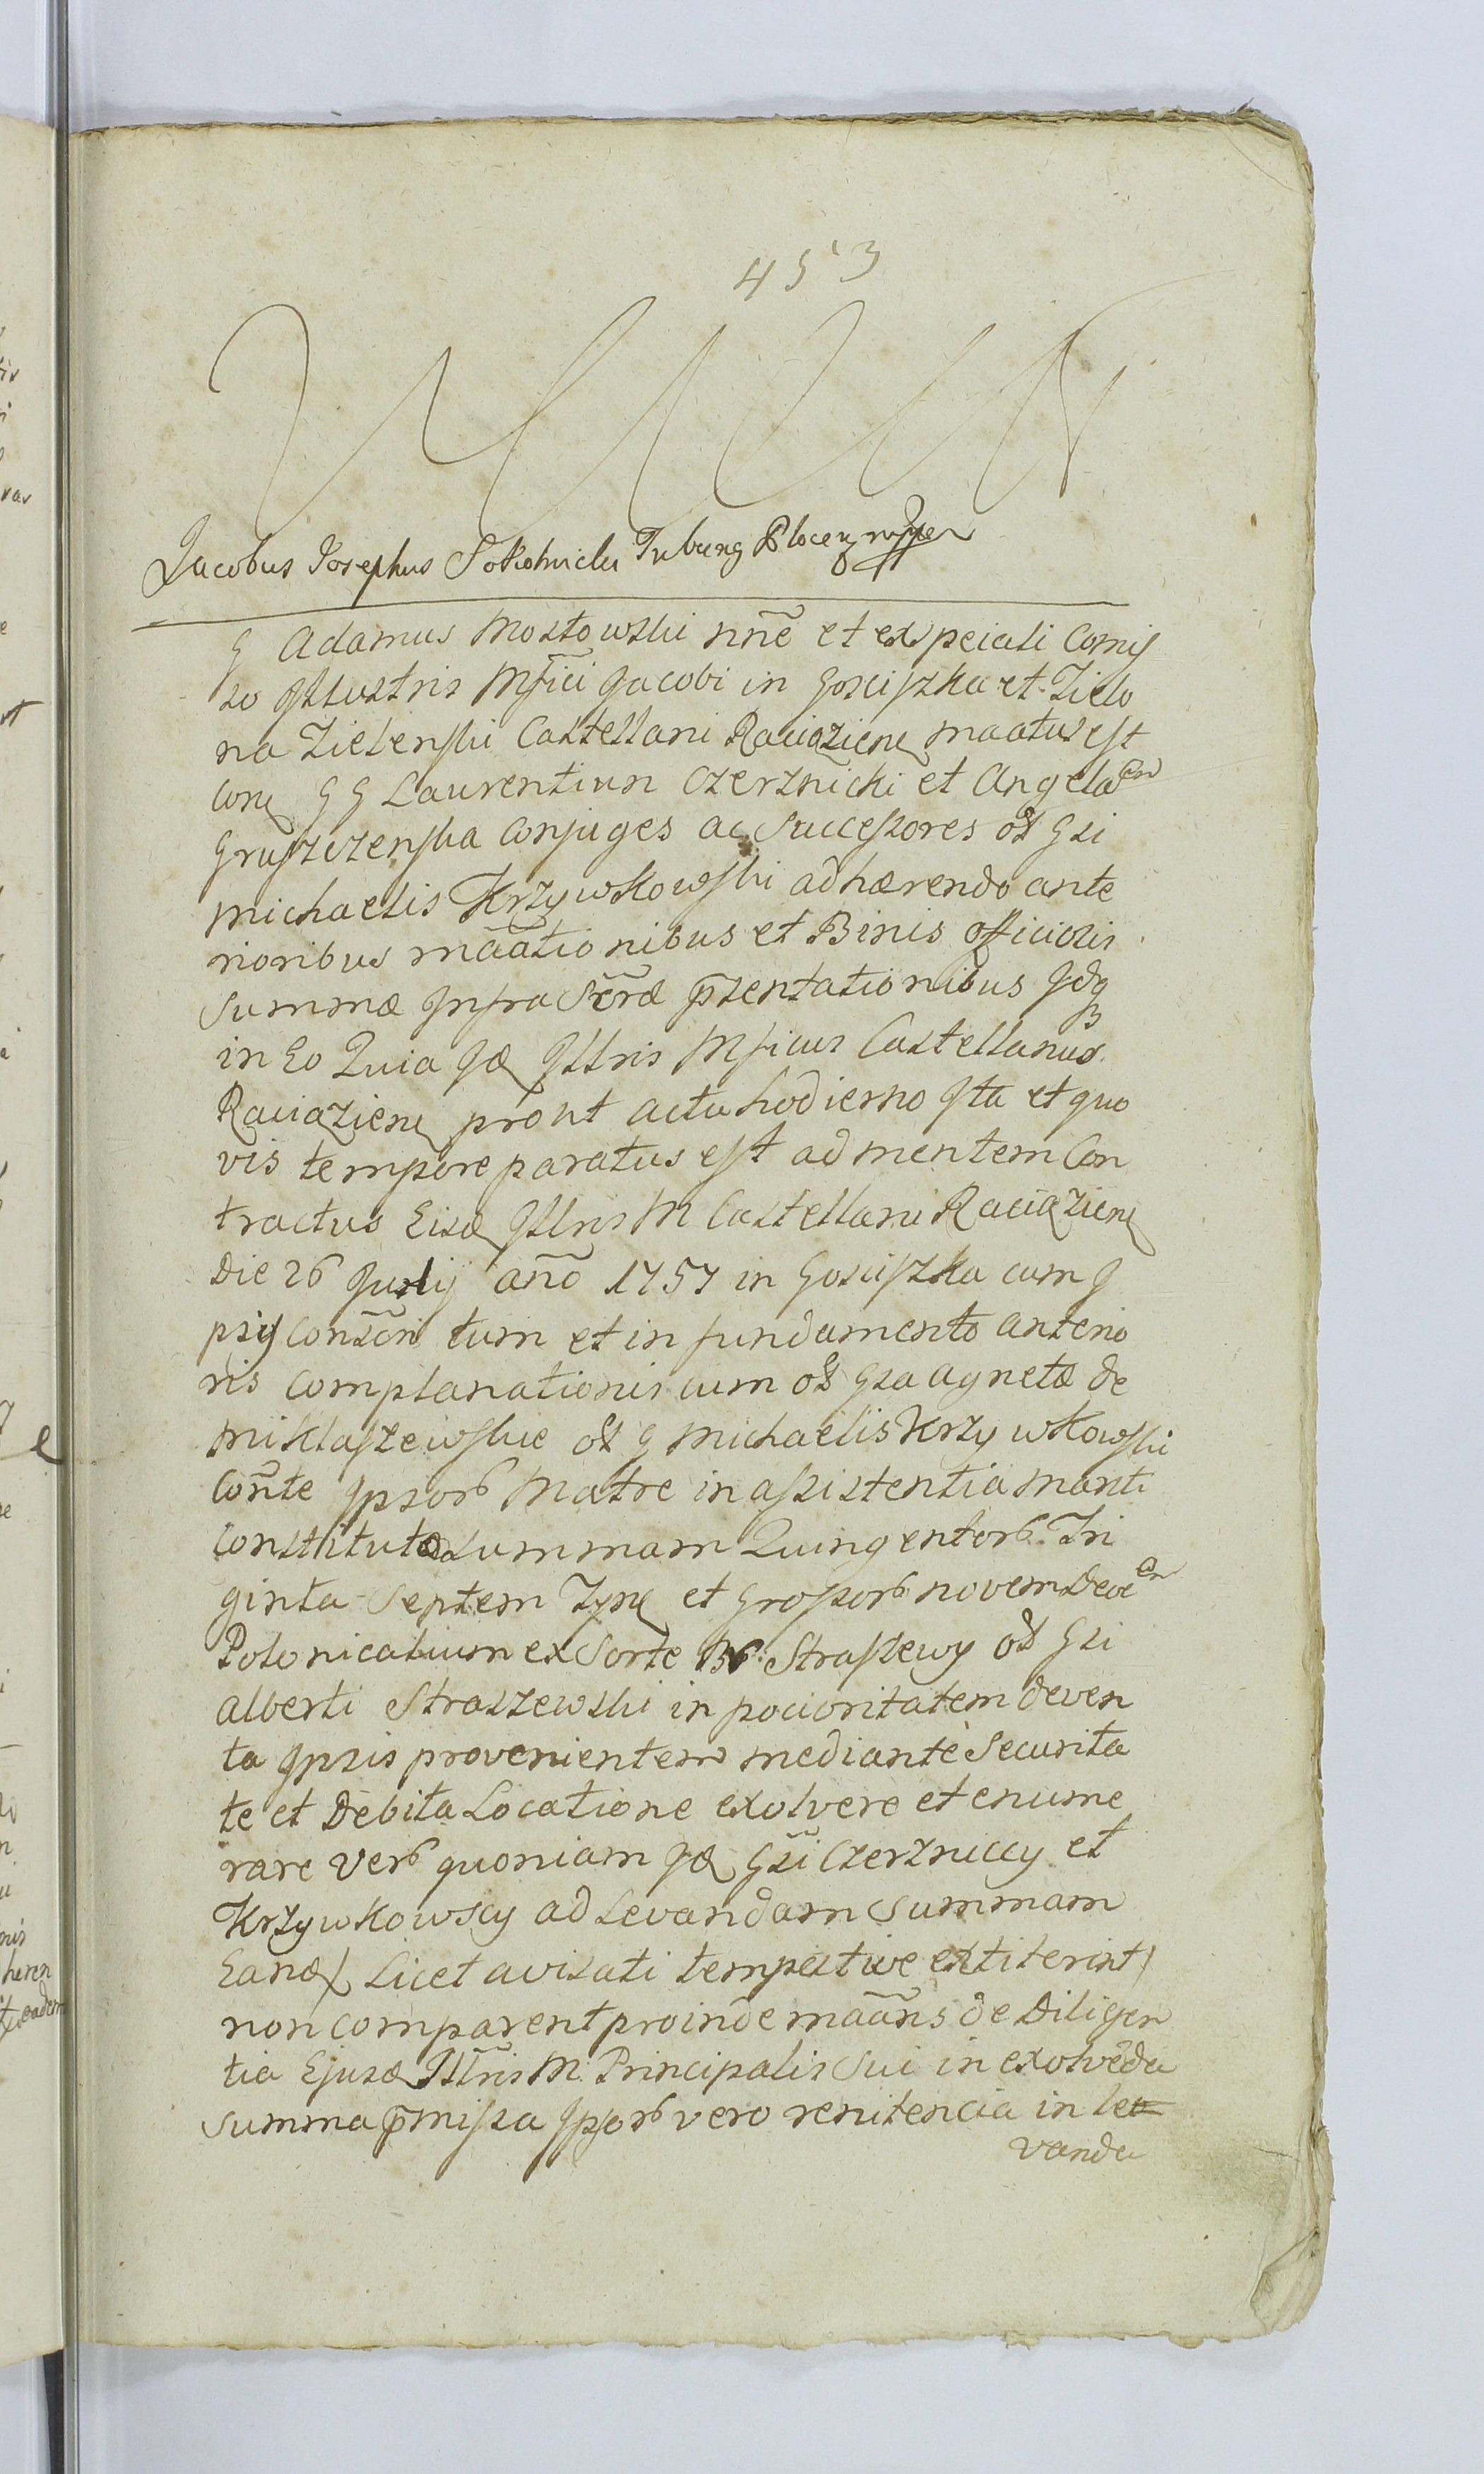 453
Jacobus Josephus Sokolnicki Tubung Plocen mpp
G Adamus Mostowski nñe et ex speciali Comis
so Jllustris Mfici Jacobi in Gosciszka et Zielo
na Zielenski Castellani Raciązien maatus est
Con G G Laurentium Czerznicki et Angelaen
Gruszczenska Conjuges ac Successores od Gsi
Michaelis Krzywkowski adhærendo ante
rioribus mãationibus et Binis officiosis
Summæ Jnfra Scrõæ p̃sentationibus Jdq
in Eo Quia Jd Jllris Mficus Castellanus
Raciązien prout actu hodierno Jta et quo
vis tempore paratus est ad mentem Con
tractus Eisd Jllris M Castellani Raciązien
Die 26 Julij año 1757 in Gosciszka cum J
psis Conscri tum et in fundamento anterio
ris Complanationis cum od Gsa Agneta de
Miklaszewskie od G Michaelis Krzywkowski
Coñte Jpsor Matre in assistentia manti
Constituta summam Quingentor Tri
ginta Septem Typ et Grossor novem Decem
Polonicalium ex Sorte B Straszewy od Gsi
Alberti Straszewski in pocioritatem deven
ta Jpsis provenientem mediante Securita
te et Debita Locatione exolvere et enume
rare Ver quoniam Jd Gsi Czerzniccy et
Krzywkowscy ad Levandam Summam
Eand / Licet avisati tempestive extiterint /
non comparent proinde mãans de Diligen
tia Ejusd Jllris M. Principalis Sui in exolvẽda
Summa p̃missa Jpsor vero renitencia in le
vanda